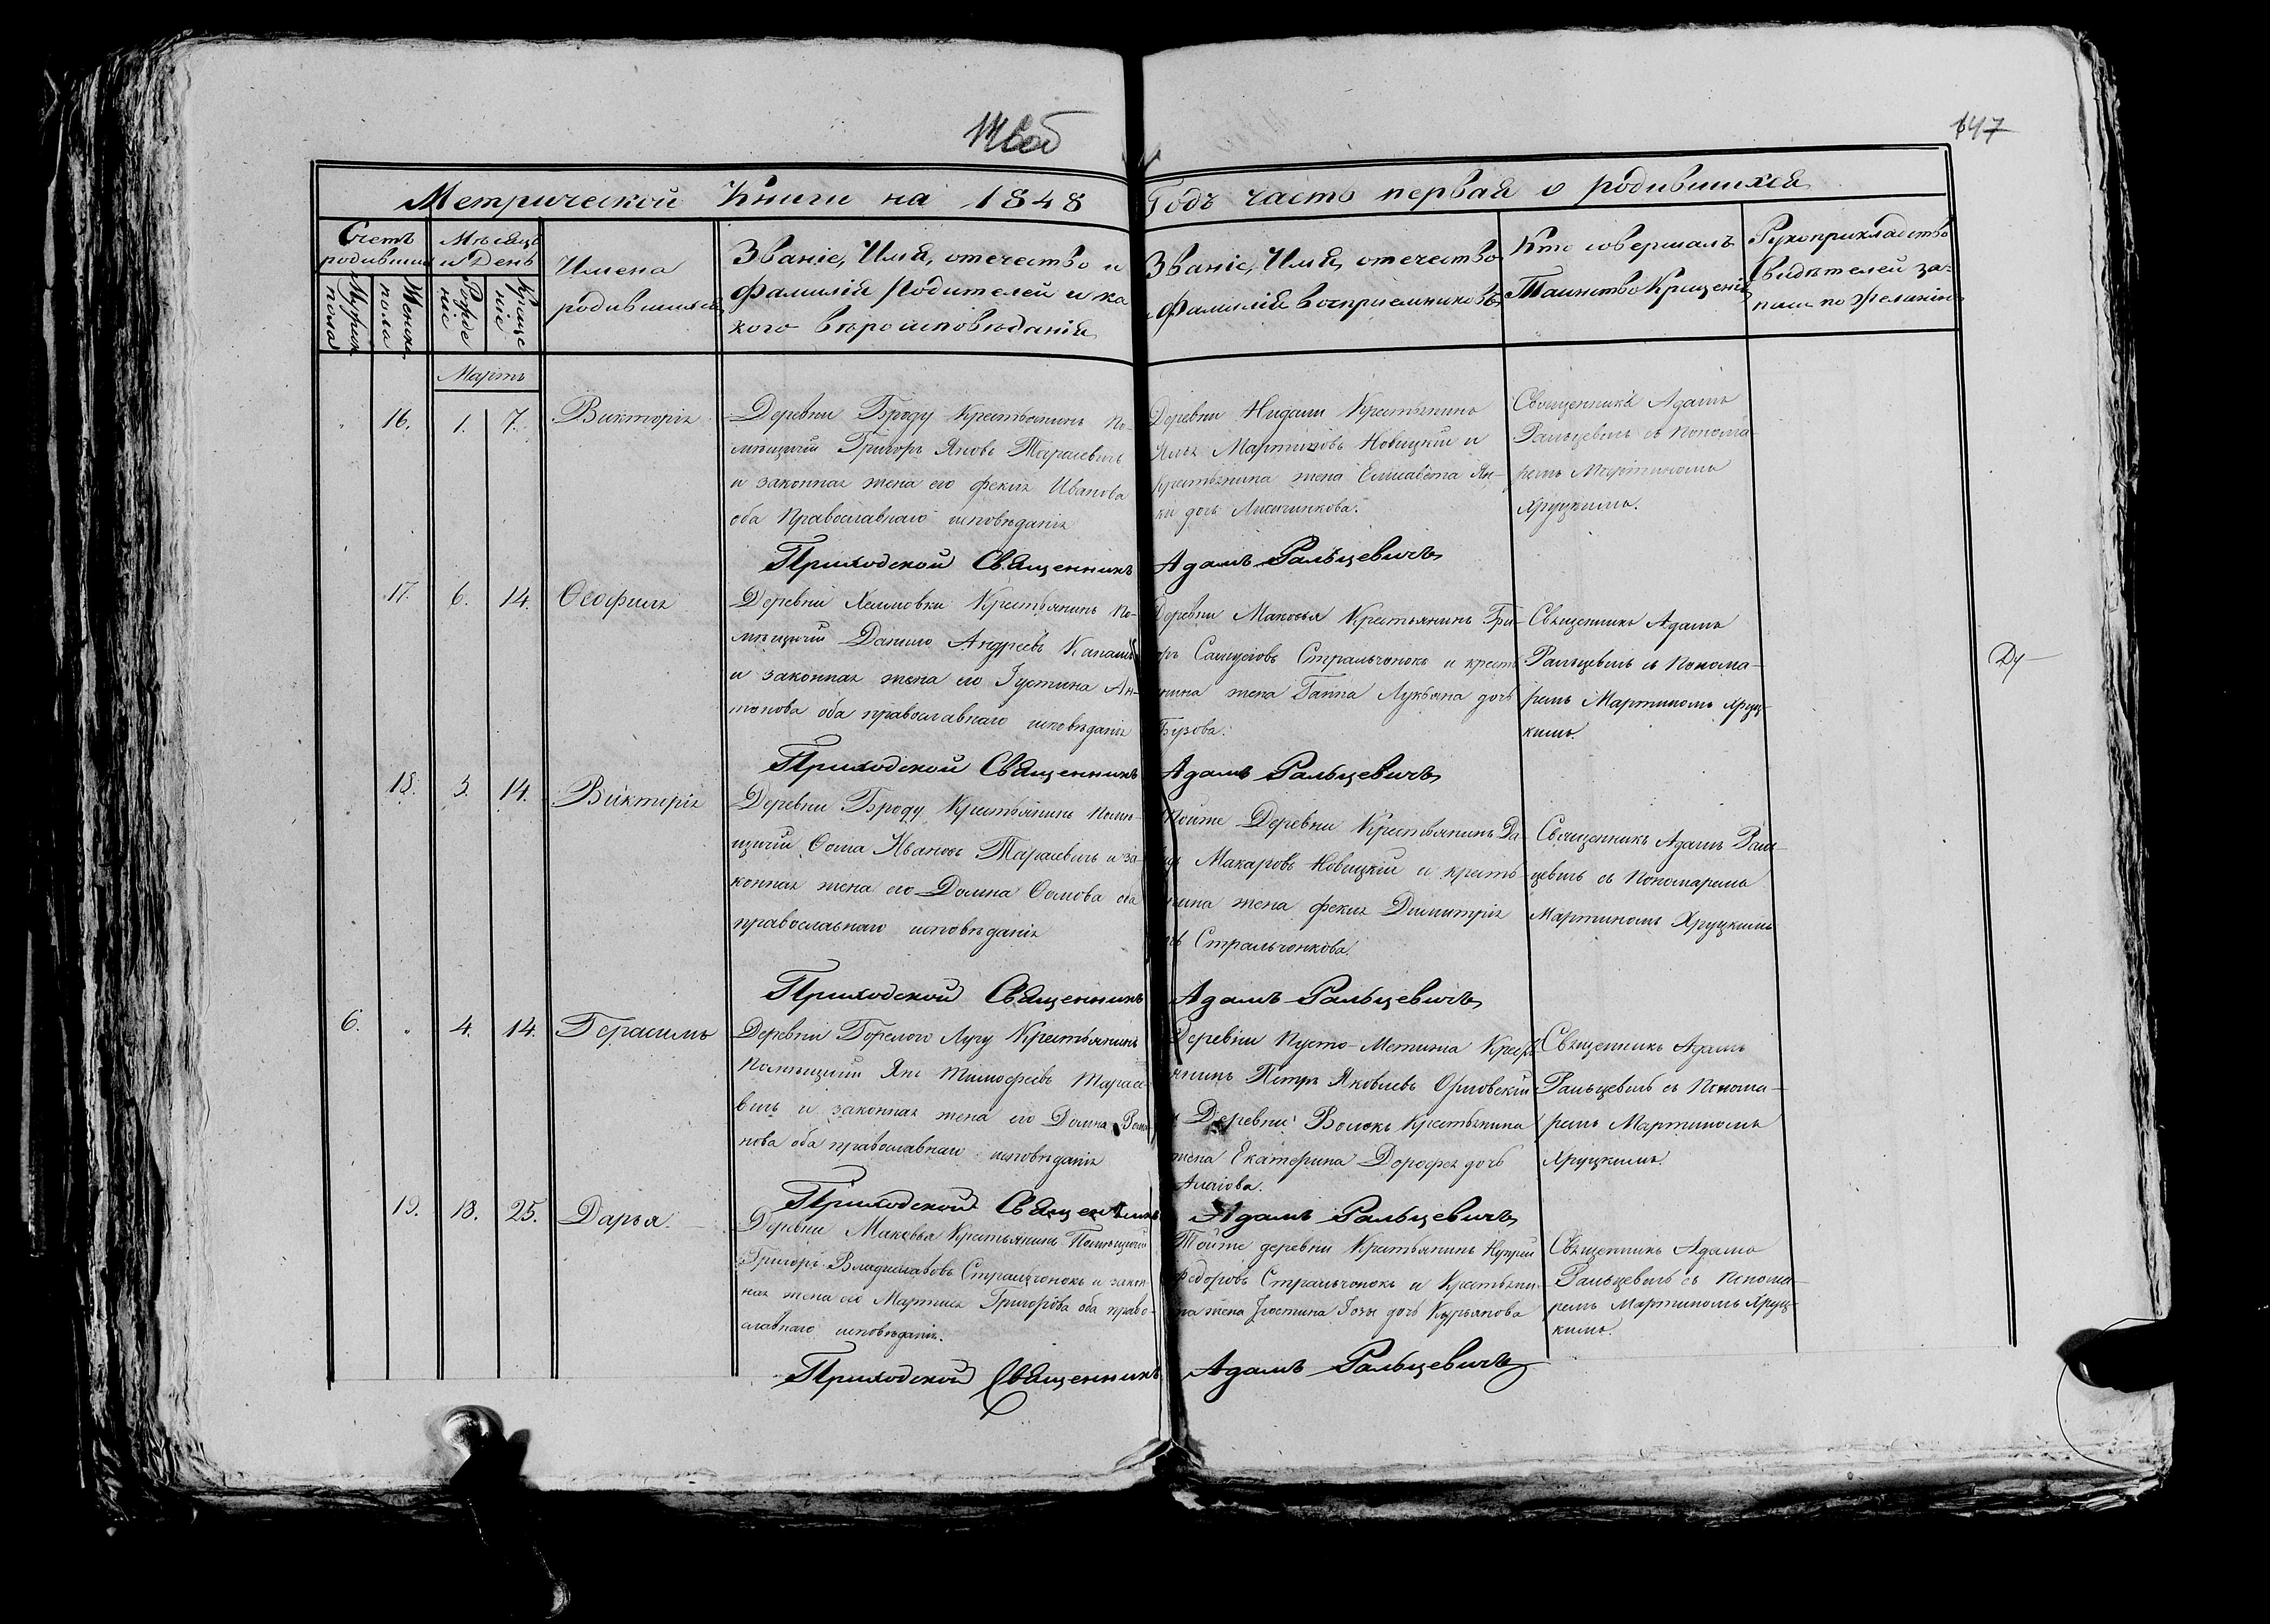 147
Метрической Книги на 1848 Годъ часть первая о родившихся
Счетъ родившихся
Мѣсяцъ и День
Имена родившихся
Званіе, Имя, отечество и
фамилія Родителей и ка
кого вѣроисповѣданія
Званіе, Имя, отечество
фамилія воспріемниковъ
Кто совершалъ
Таинство Крещенія
Рукоприкладство
свидѣтелей за-
писи по желанію
Мужеск пола
Женск. пола
Рожде ніе
Креще ніе
Мартъ
16. 1. 7. Викторія
Деревни Броду Крестьянинъ По-
мѣщичій Григоръ Яновъ Тарасевичъ
и законная жена его Фекла Иванова
оба Православнаго исповѣданія
Деревни Крестьянинъ
Мартиновъ Новицкій и
крестьянина жена Елисавета Ян-
ки дочь
Священникъ Адамъ
Ральцевичъ съ Понома
ремъ Мартиномъ
Хруцкимъ.
Приходской Священникъ Адамъ Ральцевичъ
17. 6. 14. Ѳеофила
Деревни Крестьянинъ По-
мѣщичій Данило Андреевъ
и законная жена его Іустина Ан-
тонова оба православнаго исповѣданія
Деревни Маковья Крестьянинъ Гри-
оръ Самуловъ Стральчонокъ и кресть
нина жена Ганна Лукьяна дочь
Бузова.
Священникъ Адамъ
Ральцевичъ съ Понома-
ремъ Мартиномъ Хруц-
кимъ.
Приходской Священникъ Адамъ Ральцевичъ
18. 3. 14. Викторія
Деревни Броду Крестьянинъ Помѣ-
щичій Ѳома Ивановъ Тарасевичъ и за-
конная жена его Домна Ѳомова оба
православнаго исповѣданія
Тойже Деревни Крестьянинъ Да-
Макаровъ Новицкій и кресть-
нина жена Фекла Димитрія
Стральчонкова.
Священникъ Адамъ Раль-
цевичъ съ Пономаремъ
Мартиномъ Хруцкимъ
Приходской Священникъ Адамъ Ральцевичъ
6. " 4. 14. Герасимъ
Деревни Горелого Лугу Крестьянинъ
Помѣщичій Янъ Тимофеевъ Тарасе-
вичъ и законная жена его Домна Рома-
нова оба православнаго исповѣданія
Деревни Пусто-Метижа Кресть
янинъ Петръ Яковлевъ Орловскій
и Деревни Волокъ Крестьянина
жена Екатерина Дорофея дочь
Священникъ Адамъ
Ральцевичъ съ Понома-
ремъ Мартиномъ
Хруцкимъ.
Приходской Священникъ Адамъ Ральцевичъ
19. 18. 25. Дарья.
Деревни Маковья Крестьянинъ Помѣщичій
Григоръ Стральчонокъ и закон
ная жена его Григорова оба право-
славнаго исповѣданія.
Тойже деревни Крестьянинъ
Федоровъ Стральчонокъ и Крестьяни-
на жена Іустина дочь Курьянова
Священникъ Адамъ
Ральцевичъ съ Понома-
ремъ Мартиномъ Хруц-
кимъ.
Приходской Священникъ Адамъ Ральцевичъ